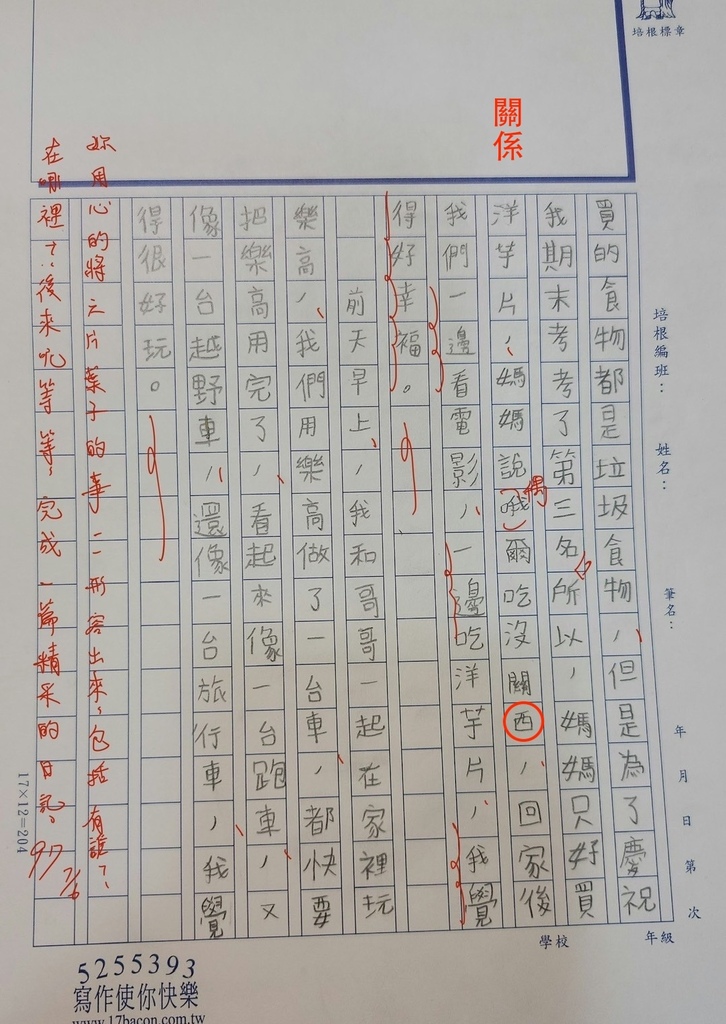 培根標章
關係
培根編班：
姓名：
筆名：
年 月 日 第 次
學校
年級
買的食物都是垃圾食物，但是為了慶祝
我期末考考了第三名所以，媽媽只好買
洋芋片，媽媽說哦爾吃沒關西，回家後
偶
我們一邊看電影，一邊吃洋芋片，我覺
得好幸福。
前天早上，我和哥哥一起在家裡玩
樂高，我們用樂高做了一台車，都快要
把樂高用完了，看起來像一台跑車，又
像一台越野車，還像一台旅行車，我覺
得很好玩。
妳用心的將三片葉子的事一一形容出來，包括有誰？、
在哪裡？、後來呢等等，完成一篇精采的日記。
97
7/6
17×12=204
5255393
寫作使你快樂
www.17bacon.com.tw